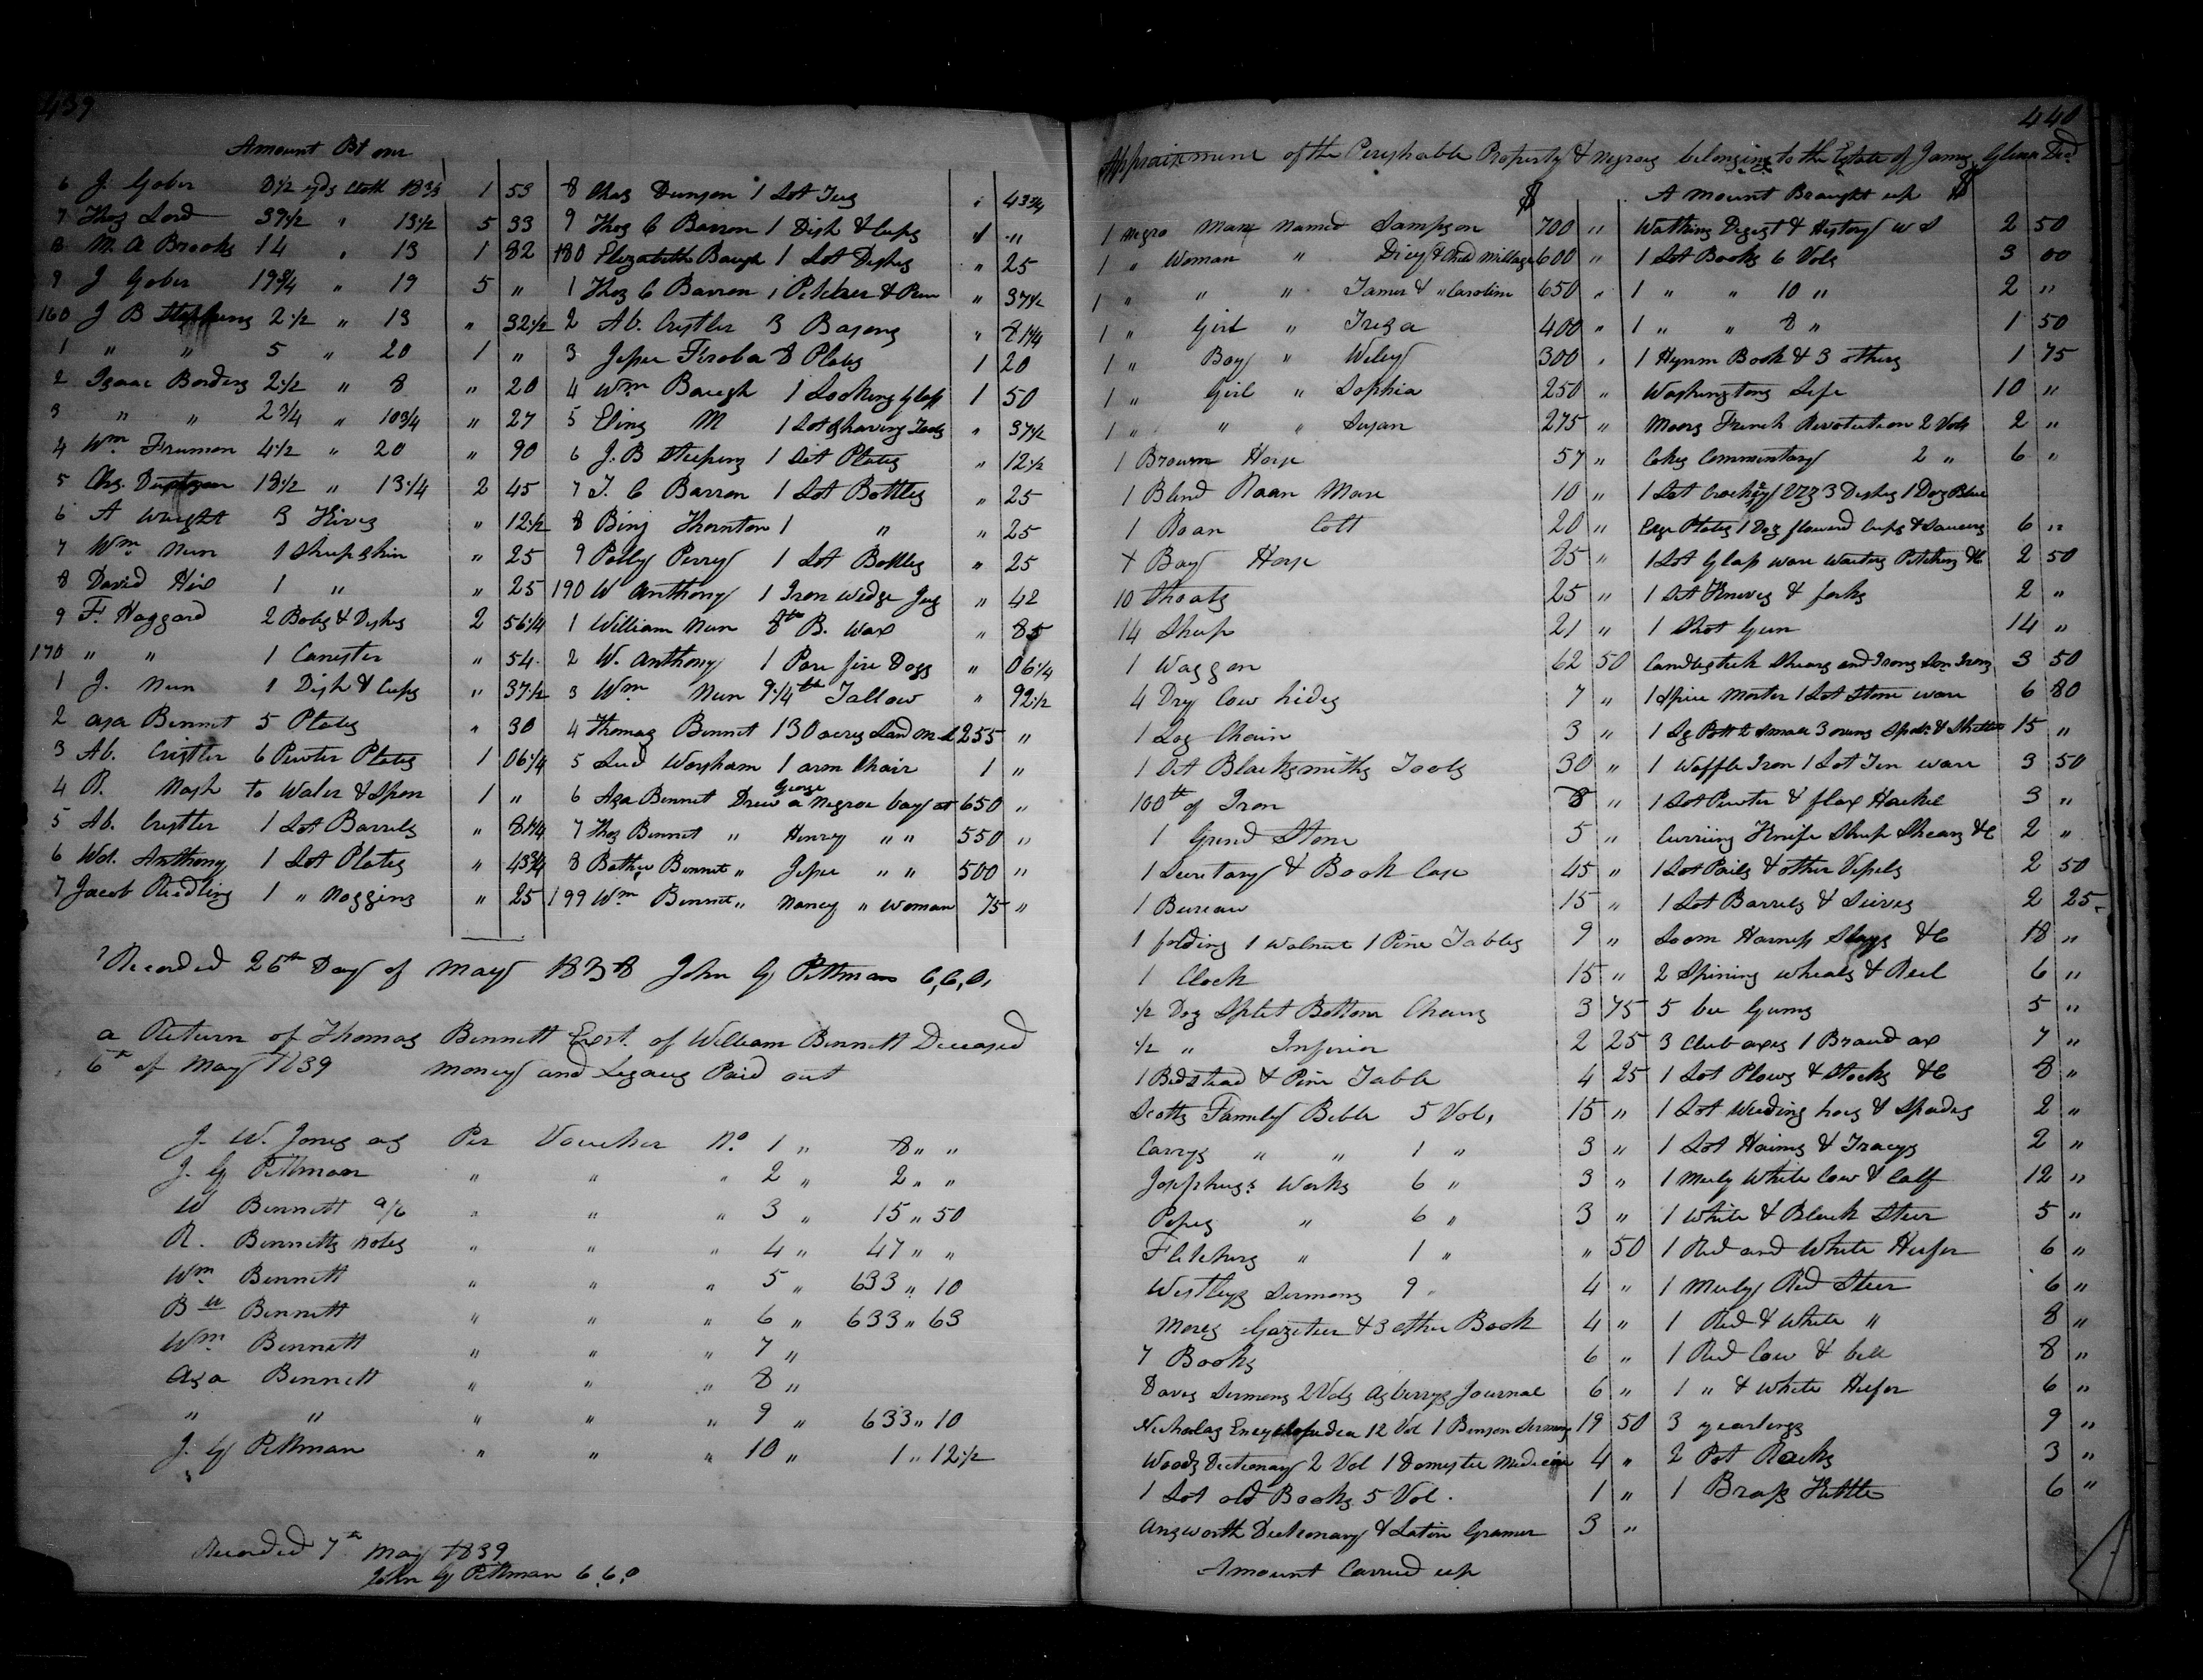 439
Amount Bt over
6 J. Gober 8 1/2 yds cloth 18 3/4 1 53
7 Thos Lord 39 1/2 " 13 1/2 5 33
8 M. A Brooks 14 " 13 1 82
9 J Gober 19 3/4 " 19 5 "
160 J B Stephens 2 1/2 " 13 " 32 1/2
1 " " 5 " 20 1 "
2 Isaac Borders 2 1/2 " 8 " 20
3 " " 2 3/4 " 10 3/4 " 27
4 Wm. Freeman 4 1/2 " 20 " 90
5 Chs. 18 1/2 " 13 1/4 2 45
6 A Wright 3 Hives " 12 1/2
7 Wm. Nun 1 Sheepskin " 25
8 David Hix 1 " " 25
9 F. Haggard 2 Bots & Dishes 2 56 1/4
170 " " 1 Canister " 54
1 J. Nun 1 Dish & Cups " 37 1/2
2 Asa Bennet 5 Plates " 30
3 Ab. Cristler 6 Pewter Plates 1 06 1/4
4 R. Nash to Water & Spoon 1 "
5 Ab. Cristler 1 Lot Barrels " 81 1/4
6 Wd. Anthony 1 Lot Plates " 43 3/4
7 Jacob Reedling 1 " Noggins " 25
8 Chas Dunson 1 Lot Jugs " 43 3/4
9 Thos C Barron 1 Dish & Cups 1 "
180 Elizabeth Baugh 1 Lot Dishes " 25
1 Thos C Barron 1 Pitcher & Pan " 37 1/2
2 Ab. Cristler 3 Basons " 81 1/4
3 Jesse Firoba 8 Plates 1 20
4 Wm Baugh 1 Looking Glass 1 50
5 M 1 Lot Shaving Tools " 37 1/2
6 J. B Stephens 1 Set Plates " 12 1/2
7 T. C Barron 1 Lot Bottles " 25
8 Binj Thornton 1 " " 25
9 Polly Perry 1 Lot Bottles " 25
190 W Anthony 1 Iron Wedge Jug " 42
1 William Nun 8 lb B. Wax " 85
2 W. Anthony 1 Pare fire Dogs " 06 1/4
3 Wm Nun 9 1/4 lb Tallow " 92 1/2
4 Thomas Bennet 130 acres Land M-L 255 "
5 Lud Worsham 1 arm Chair 1 "
George
6 Asa Bennet Drew a Negroe boy at 650 "
7 Thos Bennet " Henry " " 550 "
8 Bennet " Jesse " " 500 "
199 Wm Bennet " Nancy " Woman 75 "
Recorded 26th Day of May 1838 John G Pittman C,C,O,
a Return of Thomas Bennett Exrt. of William Bennett Deceased
6th of May 1839 Money and Legacs Paid out
J. W. Jones as Per Voucher No. 1 " 8 " "
J. G Pittman " " " 2 " 2 " "
W Bennett a/c " " " 3 " 15 " 50
R. Bennetts notes " " " 4 " 47 " "
Wm Bennett " " " 5 " 633 " 10
B W Bennett " " " 6 " 633 " 63
Wm. Bennett " " " 7 "
Asa Bennett " " " 8 "
" " " " " 9 " 633 " 10
J. G Pittman " " " 10 " 1 " 12 1/2
Recorded 7th May 1839
John G Pittman C.C.O
440
Appraisement of the Perishable Property & Negroes belonging to the Estate of James Glenn Decd
$
1 Negro Man Named Sampson 700 "
1 " Woman " Dicy & Child Millage 600 "
1 " " " Tamer & " Caroline 650 "
1 " Girl " Treza 400 "
1 " Boy " Wiley 300 "
1 " Girl " Sophia 250 "
1 " " " Susan 275 "
1 Brown Horse 57 "
1 Blind Roan Mare 10 "
1 Roan Colt 20 "
+ Bay Horse 85 "
10 Shoats 25 "
14 Sheep 21 "
1 Waggon 62 50
4 Dry Cow hides 7 "
1 Log Chain 3 "
1 Set Blacksmiths Tools 30 "
100 lb of Iron 8 "
1 Grind Stone 5 "
1 Secretary & Book Case 45 "
1 Bureau 15 "
1 folding 1 Walnut 1 Pine Tables 9 "
1 Clock 15 "
1/2 Doz Split Bottom Chairs 3 75
1/2 " Inferior 2 25
1 Bedstead & Pine Table 4 25
Scotts Family Bible 5 Vols, 15 "
Carrys " " 1 " 3 "
Josephus's Works 6 " 3 "
Popes " 6 " 3 "
Fletchers " 1 " " 50
Westleys Sermons 9 " 4 "
Mores Gazeteer & 3 other Book 4 "
7 Books 6 "
Daves Sermons 2 Vols Asberrys Journal 6 "
Nicholas Encyclopedea 12 Vol 1 Benson Sermons 19 50
Woods Dictionary 2 Vol 1 Domestic Medicine 4 "
1 Lot old Books 5 Vol. 1 "
Answorth Dictionary & Latin Gramer 3 "
Amount Carried up
A Mount Braught up $
Watkins Digest & History W S 2 50
1 Lot Books 6 Vols 3 00
1 " " 10 " 2 "
1 " " 8 " 1 50
1 Hymn Book & 3 others 1 75
Washingtons Life 10 "
Moors French Revolution 2 Vols 2 "
Cokes Commentary 2 " 6 "
1 Set Crockery Viz 3 Dishes 1 Doz Blue
Edge Plates 1 Doz flowerd Cups & Saucers 6 "
1 Lot Glass ware Waiters Pitchers &C 2 50
1 Set Knives & forks 2 "
1 Shot Gun 14 "
Candlestick Shears and Irons Irons 3 50
1 Spice Morter 1 Lot Stone ware 6 80
1 Lg Pott 2 Small 3 ovens & Skillet 15 "
1 Waffle Iron 1 Lot Tin ware 3 50
1 Lot Pewter & flax Hackel 3 "
Curriing Knife Sheep Shears &C 2 "
1 Lot Pails & other Vessels 2 50
1 Lot Barrels & Seives 2 25
Loom Harness Slays &C 18 "
2 Spining wheals & Reel 6 "
5 bee Gums 5 "
3 Club axes 1 Broad ax 7 "
1 Lot Plows & Stocks &C 8 "
1 Lot Weeding hoes & Spades 2 "
1 Lot Haims & Traceys 2 "
1 Muly White Cow & Calf 12 "
1 White & Black Steer 5 "
1 Red and White Heifer 6 "
1 Muly Red Steer 6 "
1 Red & White " 8 "
1 Red Cow & bell 8 "
1 " & White Heifer 6 "
3 yearlings 9 "
2 Pot Racks 3 "
1 Brass Kettle 6 "